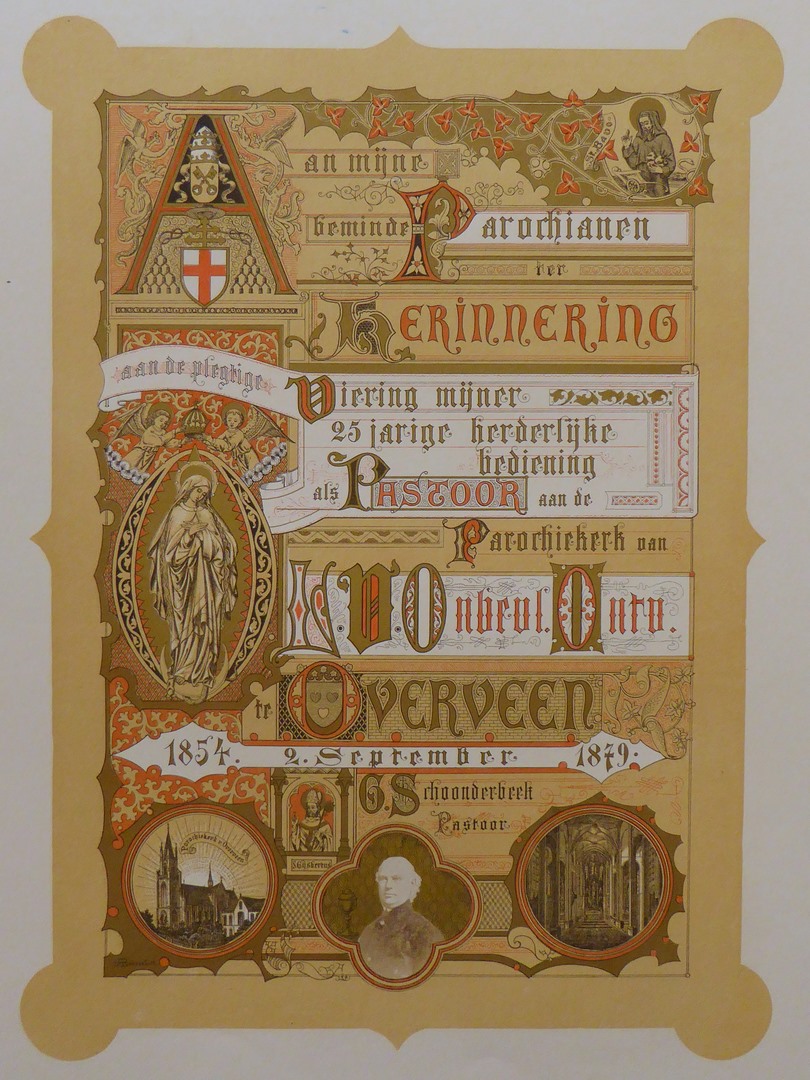 Aan mijne
beminde Parochianen
ter
HERINNERING
aan de plegtige
Viering mijner
25 jarige herderlijke
bediening
als PASTOOR aan de
Parochiekerk van
L.V.Onbevl.Ontv.
te OVERVEEN
1854. 2. September 1879.
G. Schoonderbeek
Pastoor